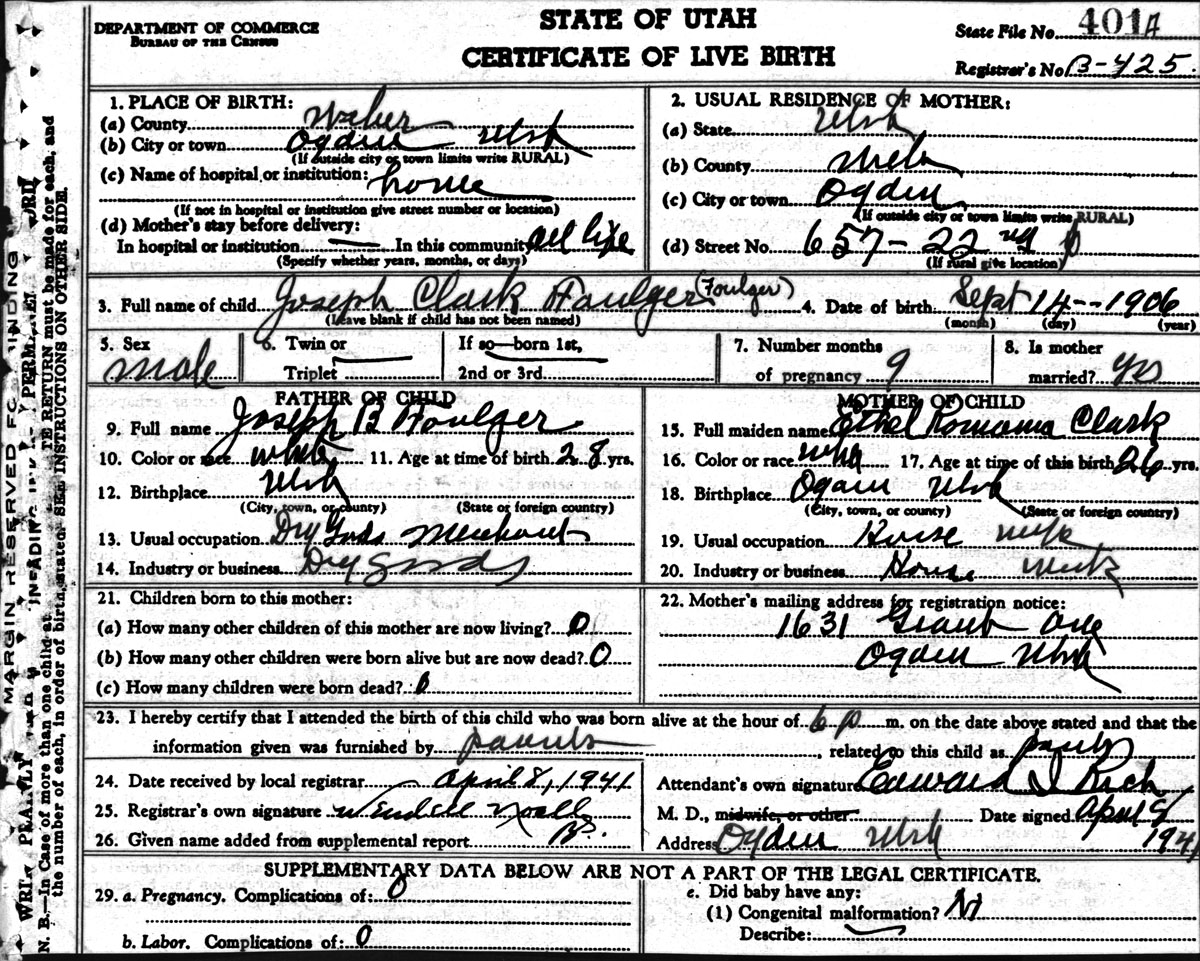 DEPARTMENT OF COMMERCE
BUREAU OF THE CENSUS
STATE OF UTAH
CERTIFICATE OF LIVE BIRTH
State File No. 401A
Registrar's No. B-425.
1. PLACE OF BIRTH:
(a) County Weber
(b) City or town Ogden Utah
(If outside city or town limits write RURAL)
(c) Name of hospital or institution: home
(If not in hospital or institution give street number or location)
(d) Mother's stay before delivery:
In hospital or institution — In this community all life
(Specify whether years, months, or days)
2. USUAL RESIDENCE OF MOTHER:
(a) State Utah
(b) County Weber
(c) City or town Ogden
(If outside city or town limits write RURAL)
(d) Street No. 657-22nd
(If rural give location)
3. Full name of child Joseph Clark Foulger (Foulger)
(Leave blank if child has not been named)
4. Date of birth Sept 14--1906
(month) (day) (year)
5. Sex male
6. Twin or Triplet
If so—born 1st, 2nd or 3rd
7. Number months of pregnancy 9
8. Is mother married? yes
FATHER OF CHILD
9. Full name Joseph B Foulger
10. Color or race white 11. Age at time of birth 28 yrs.
12. Birthplace Utah
(City, town, or county) (State or foreign country)
13. Usual occupation Dry Goods Merchant
14. Industry or business Dry goods
MOTHER OF CHILD
15. Full maiden name Ethel Romania Clark
16. Color or race wht 17. Age at time of this birth 26 yrs.
18. Birthplace Ogden Utah
(City, town, or county) (State or foreign country)
19. Usual occupation House wife
20. Industry or business House work
21. Children born to this mother:
(a) How many other children of this mother are now living? 0
(b) How many other children were born alive but are now dead? 0
(c) How many children were born dead? 0
22. Mother's mailing address for registration notice:
1631 Grant Ave
Ogden Utah
23. I hereby certify that I attended the birth of this child who was born alive at the hour of 6 p m. on the date above stated and that the
information given was furnished by parents, related to this child as parents
24. Date received by local registrar April 8, 1941
25. Registrar's own signature Wendell Noall
26. Given name added from supplemental report
Attendant's own signature Edward I Rich
M. D., midwife, or other Date signed April 8
Address Ogden Utah 1941
SUPPLEMENTARY DATA BELOW ARE NOT A PART OF THE LEGAL CERTIFICATE.
29. a. Pregnancy. Complications of: 0
b. Labor. Complications of: 0
c. Did baby have any:
(1) Congenital malformation? No
Describe:
MARGIN RESERVED FOR BINDING
N. B.—In Case of more than one child at RETURN must be made for each, and
the number of each, in order of birth, stated. SEE INSTRUCTIONS ON OTHER SIDE.